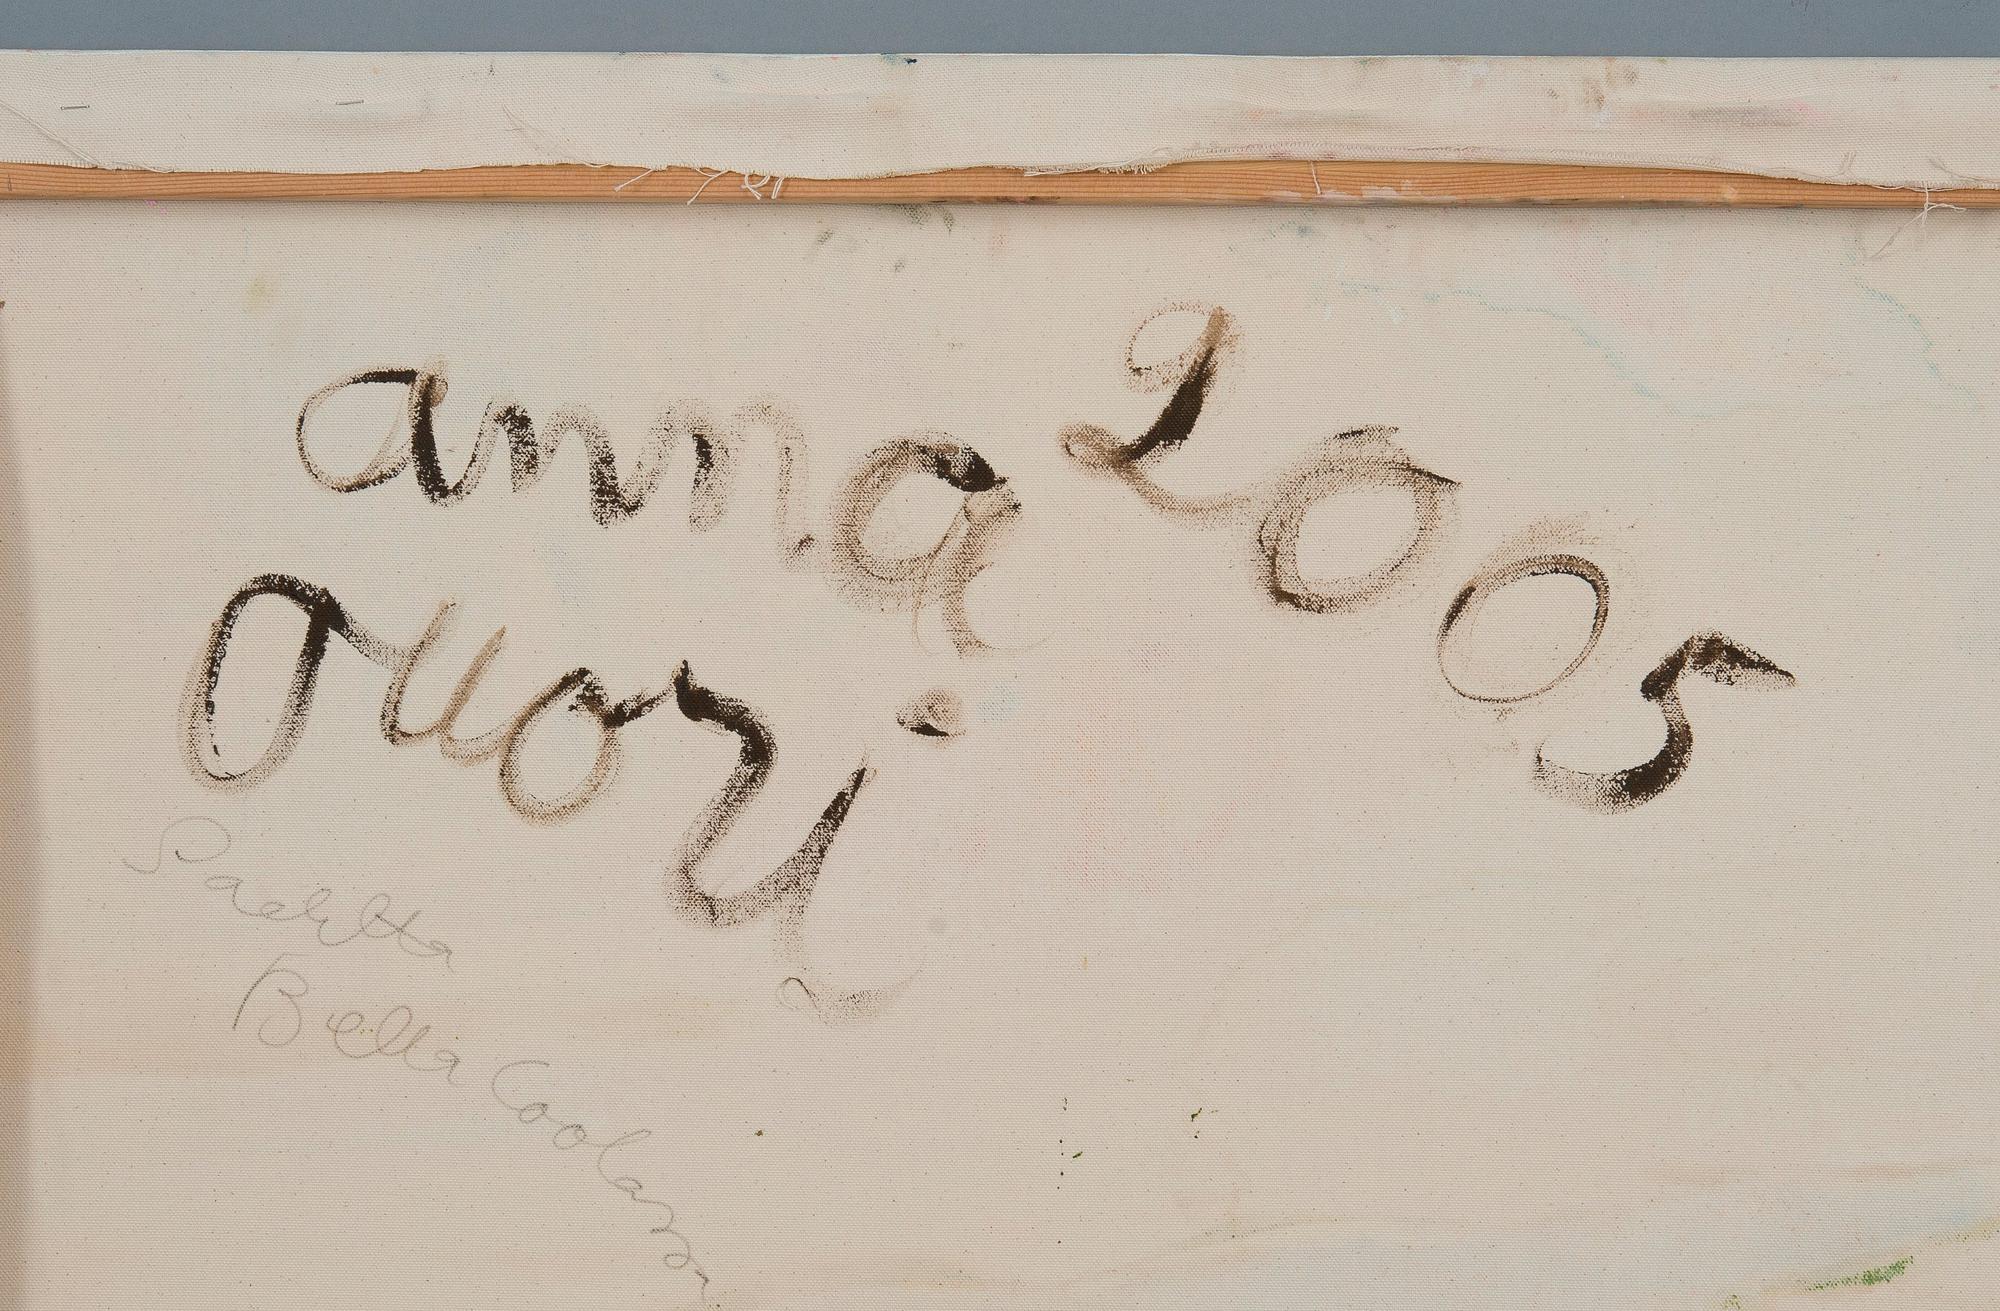 anna 2005
Vuori
Sadetta
Bella Coolassa